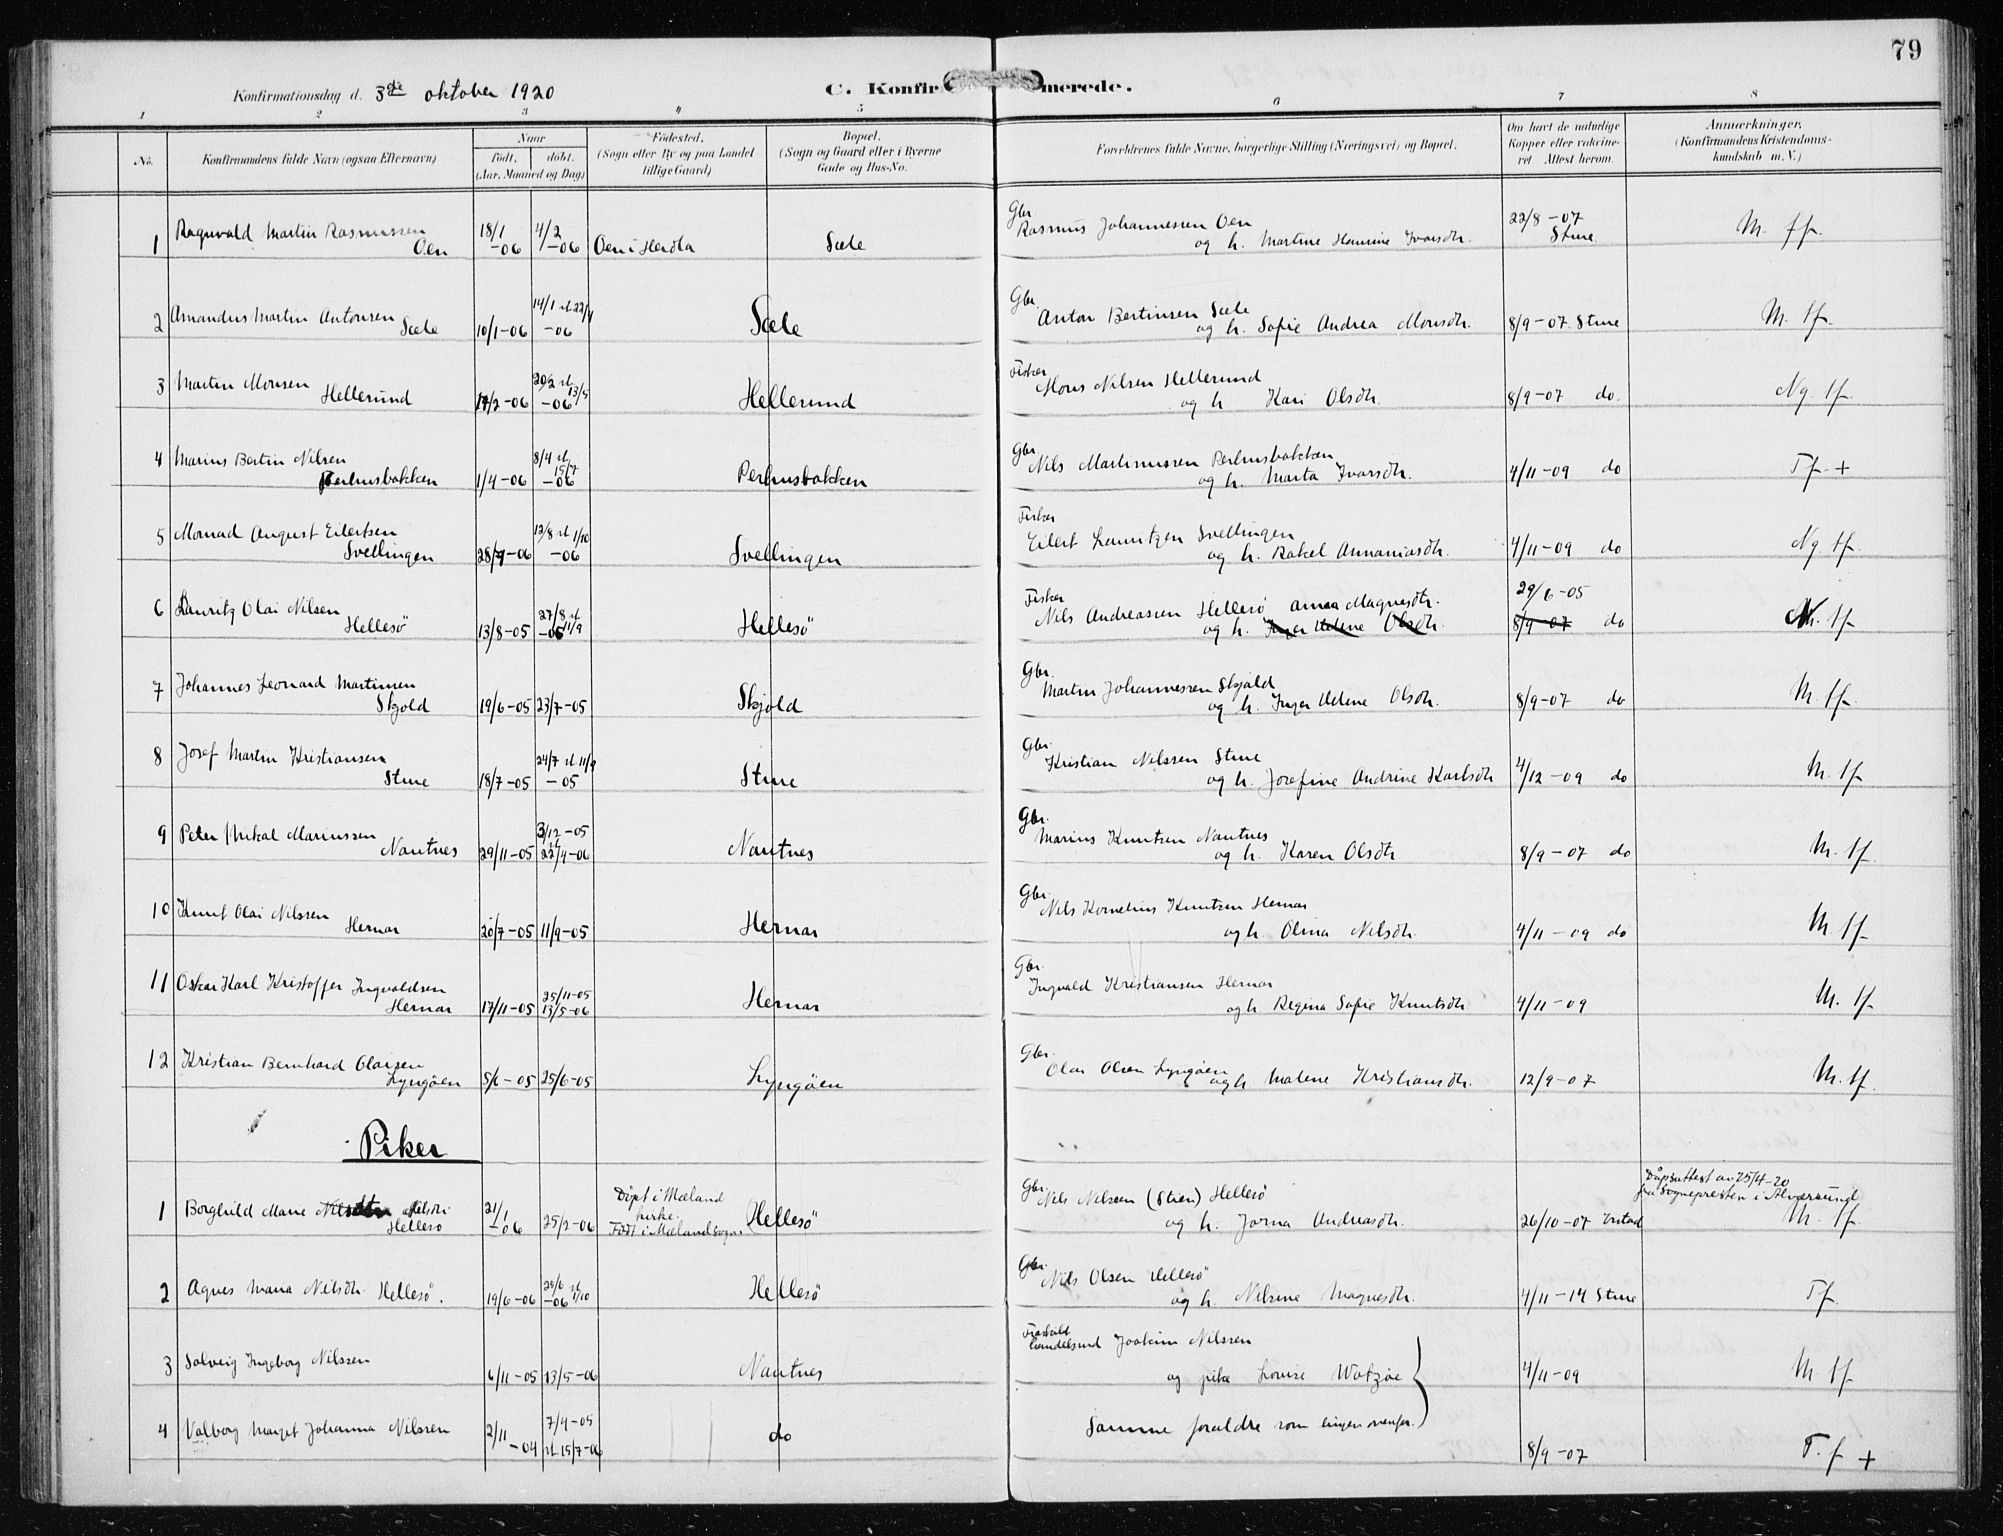 79
Konfirmationsdag d. 3die oktober 1920
C. Konfirmerede.
1 2 3 4 5 6 7 8
No. Konfirmandens fulde Navn (ogsaa Efternavn) Naar født. døbt. (Aar, Maaned og Dag) Fødested. (Sogn eller By og paa Landet tillige Gaard) Bopæl. (Sogn og Gaard eller i Byerne Gade og Hus-No. Forældrenes fulde Navne, borgerlige Stilling (Næringsvei) og Bopæl. Om havt de naturlige Kopper eller vakcineret Attest herom. Anmærkninger, (Konfirmandens Kristendomskundskab m. V.)
1 Ragnvald Martin Rasmussen Oen 18/1 -06 4/2 -06 Oen i Herdla Sæle Gbr. Rasmus Johannessen Oen og h. Martine Ivarsdtr. 22/8-07 Sture. M. ff.
2 Amandus Martin Antonsen Sæle 10/1-06 14/1 st 22/4 -06 Sæle Gbr. Anton Bertinsen Sæle og h. Sofie Andrea Monsdtr. 8/9-07 Sture M. tf.
3 Martin Monsen Hellesund 17/2-06 20/2 st 13/5 -06 Hellesund Fisker Mons Nilsen Hellesund og h Kari Olsdtr. 8/9-07 do. Ng. tf.
4 Marius Bertin Nilsen Perhusbakken 1/4-06 8/4 st 15/7 -06 Perhusbakken Gbr Nils Martinussen Perhusbakken og h. Marta Ivarsdtr. 4/11-09 do T f. +
5 Monrad August Eilertsen Svellingen 28/7-06 12/8 st 1/10 -06 Svellingen Fisker Eilert Lauritzen Svellingen og h. Rakel Annaniasdtr. 4/11-09 do Ng tf.
6 Lauritz Olai Nilsen Hellesö 13/8-05 27/8 st 11/9 -05 Hellesö Fisker Nils Andreassen Hellesö Anna Magnesdtr. og h. Inger Helene Olsdtr. 29/6-05 8/9-07 do M. tf
7 Johannes Leonard Martinsen Skjold 19/6-05 23/7-05 Skjold Gbr. Martin Johannessen Skjold og h. Inger Helene Olsdtr. 8/9-07 do M. tf.
8 Josef Martin Kristiansen Sture 18/7-05 24/7 st 11/9 -05 Sture Gbr. Kristian Nilssen Sture og h. Josefine Andrine Karlsdtr 4/12-09 do M. tf
9 Peter Mikal Mariussen Nautnes 29/11-05 3/12-05 st 22/4-06 Nautnes Gbr. Marius Knutsen Nautnes og h. Karen Olsdtr 8/9-07 do M. tf.
10 Knut Olai Nilssen Hernar 20/7-05 11/9-05 Hernar Gbr. Nils Kornelius Knutsen Hernar og h. Olina Nilsdtr. 4/11-09 do M. tf.
11 Oskar Karl Kristoffer Ingvaldsen Hernar 17/11-05 25/11-05 13/5-06 Hernar Gbr. Ingvald Kristiansen Hernar og h Regina Sofie Knutsdtr 4/11-09 M. tf
12 Kristian Bernhard Olaisen Lyngöen 5/6-05 25/6-05 Lyngöen Gbr. Olai Olsen Lyngöen og h Malene Kristiansdtr. 12/9-07 M. tf.
Piker
1 Borghild Marie Nilsdtr. Hellesö 21/1 -06 25/2-06 Döpt i Mæland kirke. Födt i Mæland sogn Hellesö Gbr. Nils Nilsen (Stien) Hellesö og h. Jorna Andreasdtr. 26/10-07 Dåpsattest av 25/4-20 fra Sognepresten i Alversund M. tf.
2 Agnes Maria Nilsdtr. Hellesö. 19/6-06 25/6 st 1/10 -06 Hellesö Gbr. Nils Olsen Hellesö og h. Nilsine Magnesdtr. 4/11-14 Sture Tf.
3 Solveig Ingeborg Nilssen 6/11-05 13/5-06 Nautnes Fraskilt handelsmd Joakim Nilssen og pike Lovise Watzöe 4/11-09 M tf
4 Valborg Marget Johanna Nilssen 2/11 -04 7/4-05 st 15/7-06 do Samme foraldre som lingen ovenfor. 8/9-07 T. f +